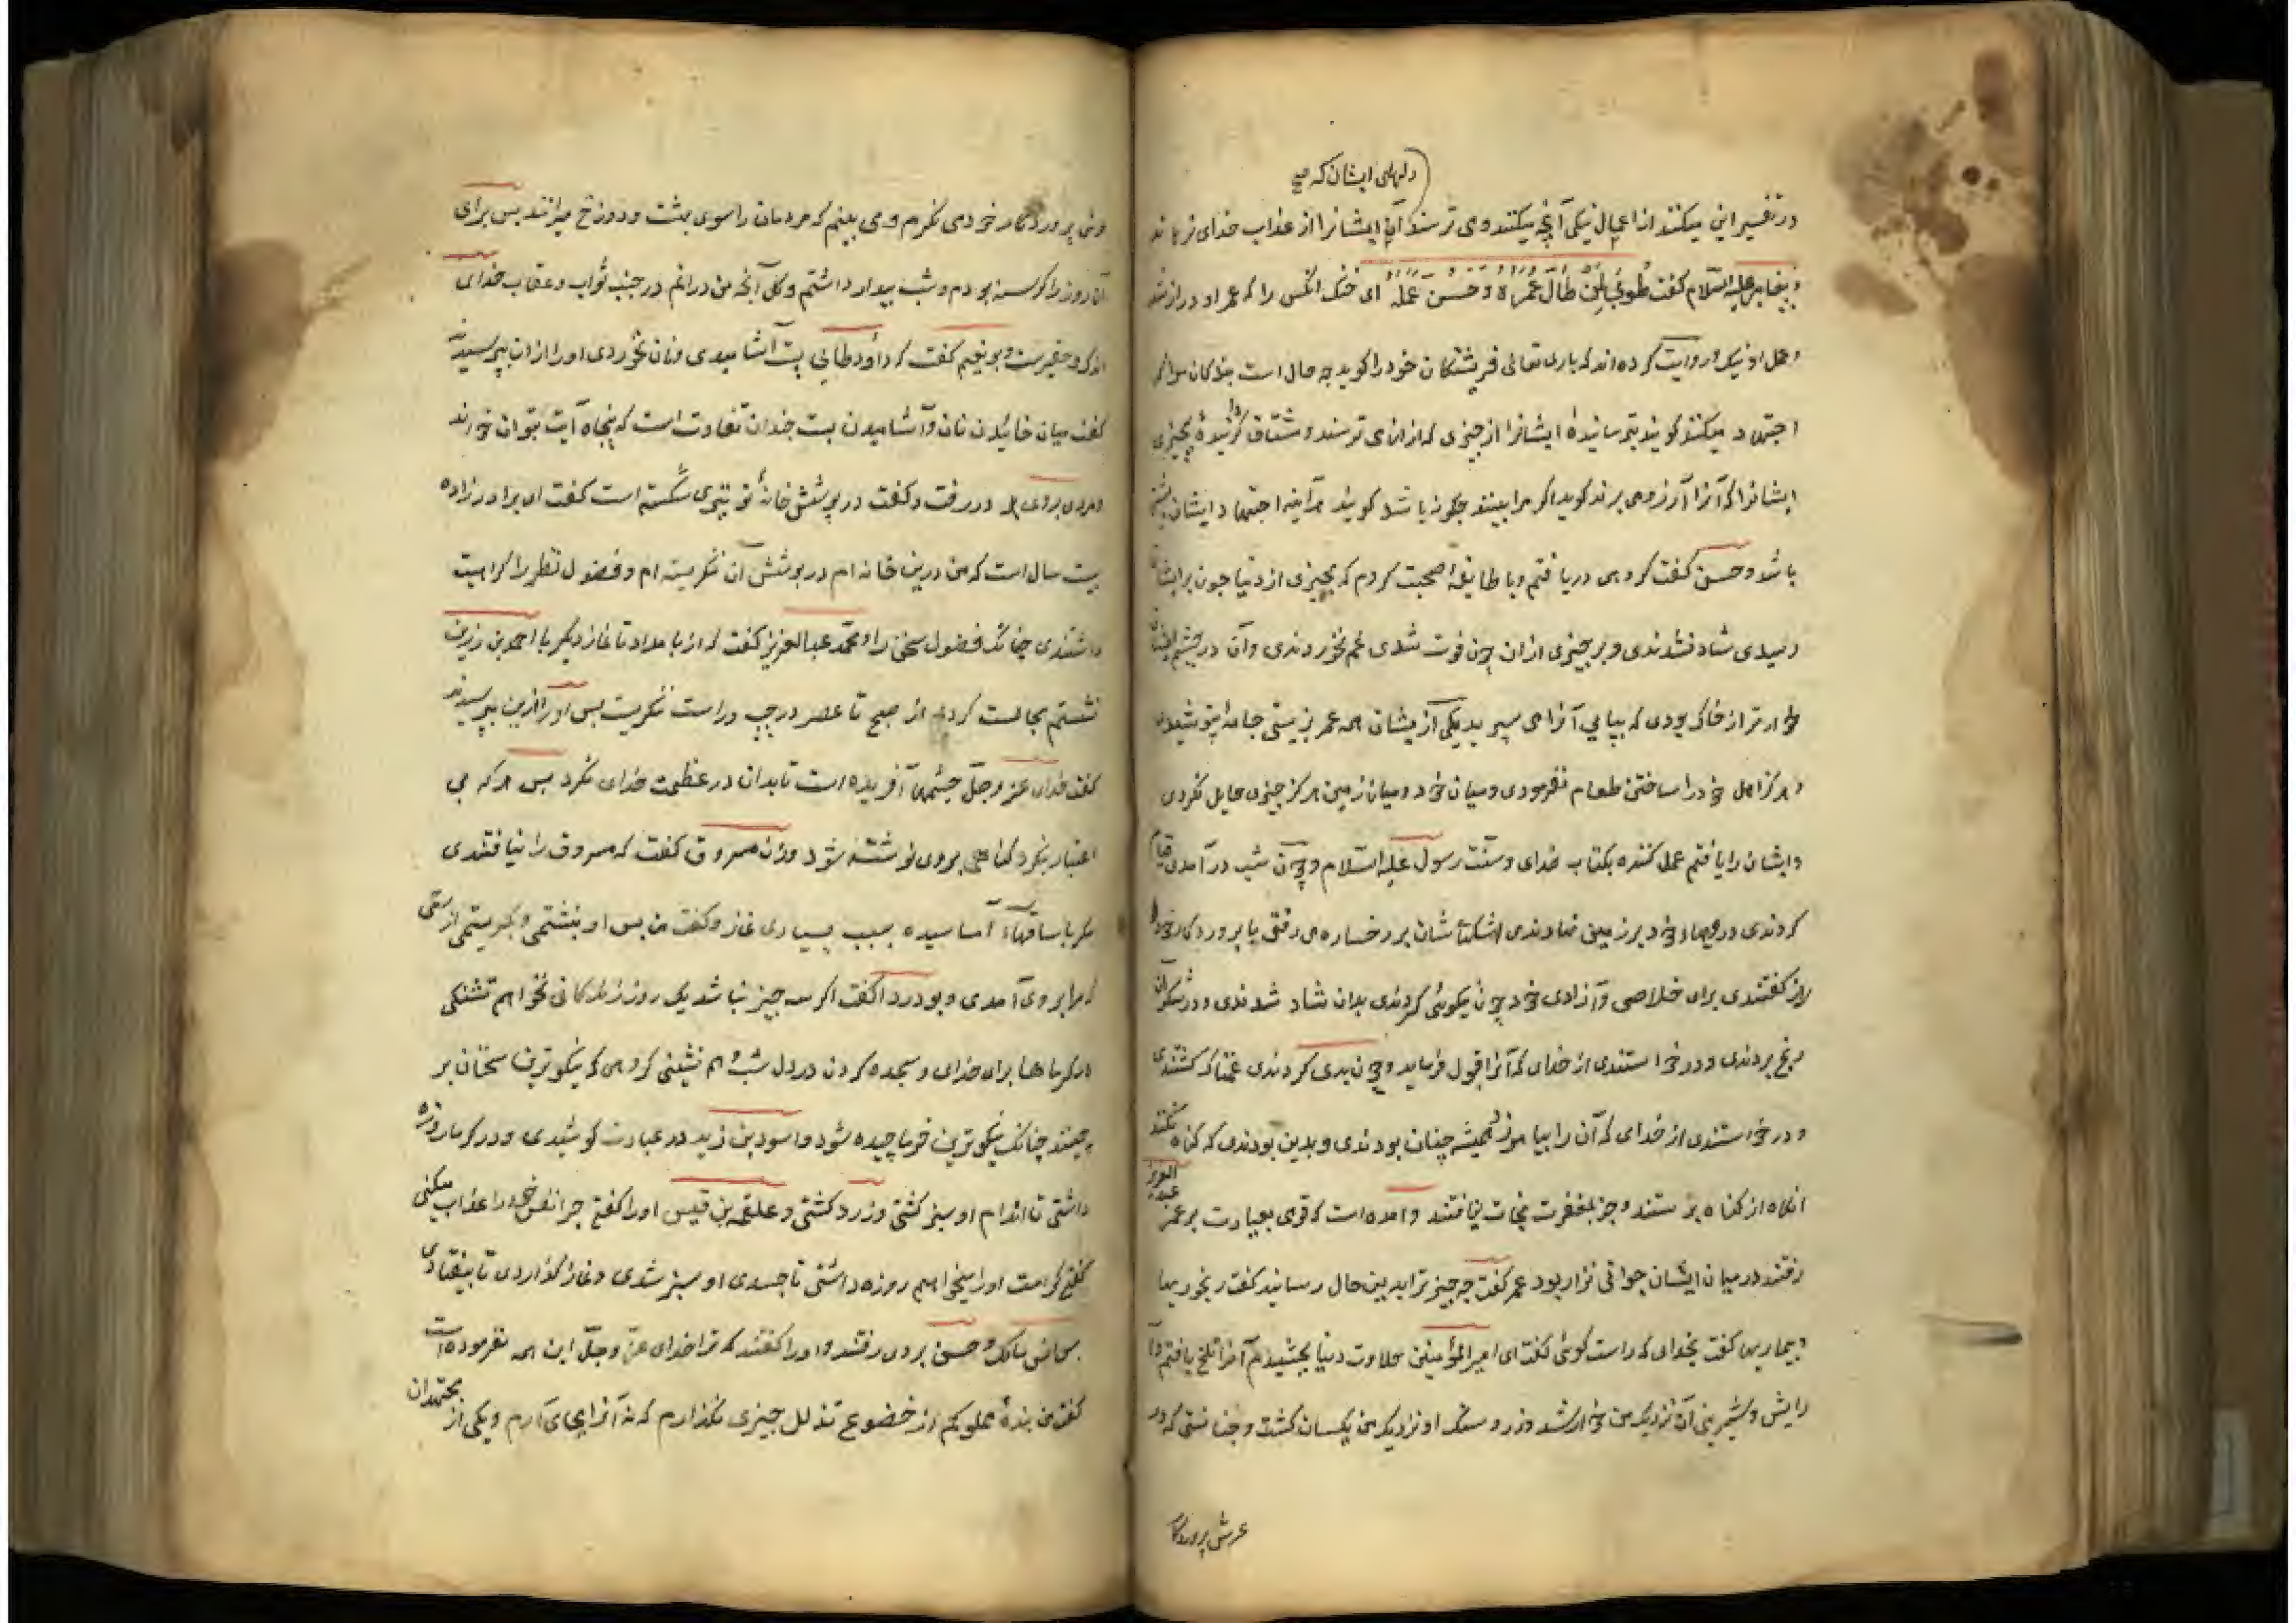 دلهای ایشان که صح
در تفسیر این میکنند از اعمال نیکی آنچه میکنند و می ترسند آیا ایشانرا از عذاب خدای نرهاند
و پیغامبر علیه السلام گفت طُوبیٰ لِمَن طالَ عُمرُهُ وَحَسُنَ عَمَلُهُ ای خنک انکس را که عمر او دراز شد
و عمل او نیکو و روایت کرده اند که باری تعالی فریشتگان خود را کوید چه حال است بندکان مرا که
اجتهاد میکنند کویند بترسانیدهٔ ایشانرا از چیزی که از ان می ترسند و مشتاق کردانیدهٔ بچیزی
ایشانرا که آنرا آرزو می برند کوید اکر مرا بینند چکونه باشد کویند هرآینه اجتهاد ایشان بیشتر
باشد و حسن کفت کروهی دریافتم و با طایفهٔ صحبت کردم که بچیزی از دنیا چون بر ایشان
رسیدی شاد نشدندی و بر چیزی از ان چون فوت شدی غم نخوردندی و آن در چشم ایشان
خوارتر از خاک بودی که بپای آنرا می سپرید یکی از یشان همه عمر بزیستی جامهٔ نپوشیدی
و هرکز اهل خود را ساختن طعام نفرمودی و میان خود و میان زمین هرکز چیزی حایل نکردی
و ایشان را یافتم عمل کننده بکتاب خدای و سنت رسول علیه السلام و چون شب درآمدی قیام
کردندی و رویهاء خود بر زمین نهادندی اشکهاشان بر رخساره می رفتی با پروردکار خود
راز کفتندی برای خلاصی و آزادی خود چون نیکوئی کردندی بدان شاد شدندی و در شکر آن
رنج بردندی و درخواستندی از خدای که آنرا قبول فرماید و چون بدی کردندی غمناک کشتندی
و درخواستندی از خدای که آن را بیامرزد همیشه چنان بودندی و بدین بودندی که کناه نکنند
انکاه از کناه برستند و جز بمغفرت نجات نیافتند و آمده است که قومی بعیادت بر عمر عبد العزیز
رفتند در میان ایشان جوانی نزار بود عمر کفت چه چیز ترا بدین حال رسانید کفت رنجوریها
و بیماریها کفت بخدای که راست کوئی کفت ای امیر المؤمنین حلاوت دنیا بچشیدم آنرا تلخ یافتم و آ
رایش و شیرینی آن نزدیک من خوار شد و زر و سنک او نزدیک من یکسان کشت و چنانستی که در
عرش پروردکار
وی پروردکار خود می نکرم و می بینم که مردمان را سوی بهشت و دوزخ میرانند پس برای
آن روز را کرسنه بودم و شب بیدار داشتم و کل آنچه من در انم در جنب ثواب و عقاب خدای
اندک و حقیرست و بو نعیم کفت که داود طائی پست آشامیدی و نان نخوردی اورا از ان پرسیدند
کفت میان خائیدن نان و آشامیدن پست چندان تفاوت است که پنجاه آیت بتوان خواند
و مردی بروی در رفت و کفت در پوشش خانهٔ تو تیری شکسته است کفت ای برادرزاده
بیست سال است که من درین خانه ام در پوشش آن ننکریسته ام و فضول نظر را کراهیت
داشتندی چنانک فضول سخن را و محمد عبدالعزیز کفت که از بامداد تا نماز دیکر با احمد بن رزین
نشستم مجالست کردم از صبح تا عصر در چپ و راست ننکریست پس اورا ازین پرسیدند
کفت خدای عز و جل چشمها آفریده است تا بدان در عظمت خدای نکرد پس هر که بی
اعتبار نکرد کناهی بروی نوشته شود وزن مسروق کفت که مسروق را نیافتندی
مکر با ساقهاء آماسیده بسبب بسیاری نماز و کفت من پس او بنشستمی و بکریستمی از رقتی
که مرا بروی آمدی و بودردا کفت اکر سه چیز نباشد یک روز زندکانی نخواهم تشنکی
در کرماها برای خدای و سجده کردن در دل شب و هم نشینی کروهی که نیکوترین سخنان بر
چینند چنانک نیکوترین خرما چیده شود و اسود بن زید در عبادت کوشیدی و در کرما روزه
داشتی تا اندام او سبز کشتی و زرد کشتی و علقمه بن قیس اورا کفتی چرا نفس خود را عذاب میکنی
کفتی کرامت او را میخواهم روزه داشتی تا جسدی او سبز شدی و نماز کذاردی تا بیفتادی
انس مالک و حسن بروی رفتند و اورا کفتند که ترا خدای عز و جل این همه نفرموده است
کفت من بندهٔ مملوکم از خضوع تذلل چیزی نکذارم که نه آنرا بجای آرم و یکی از مجتهدان